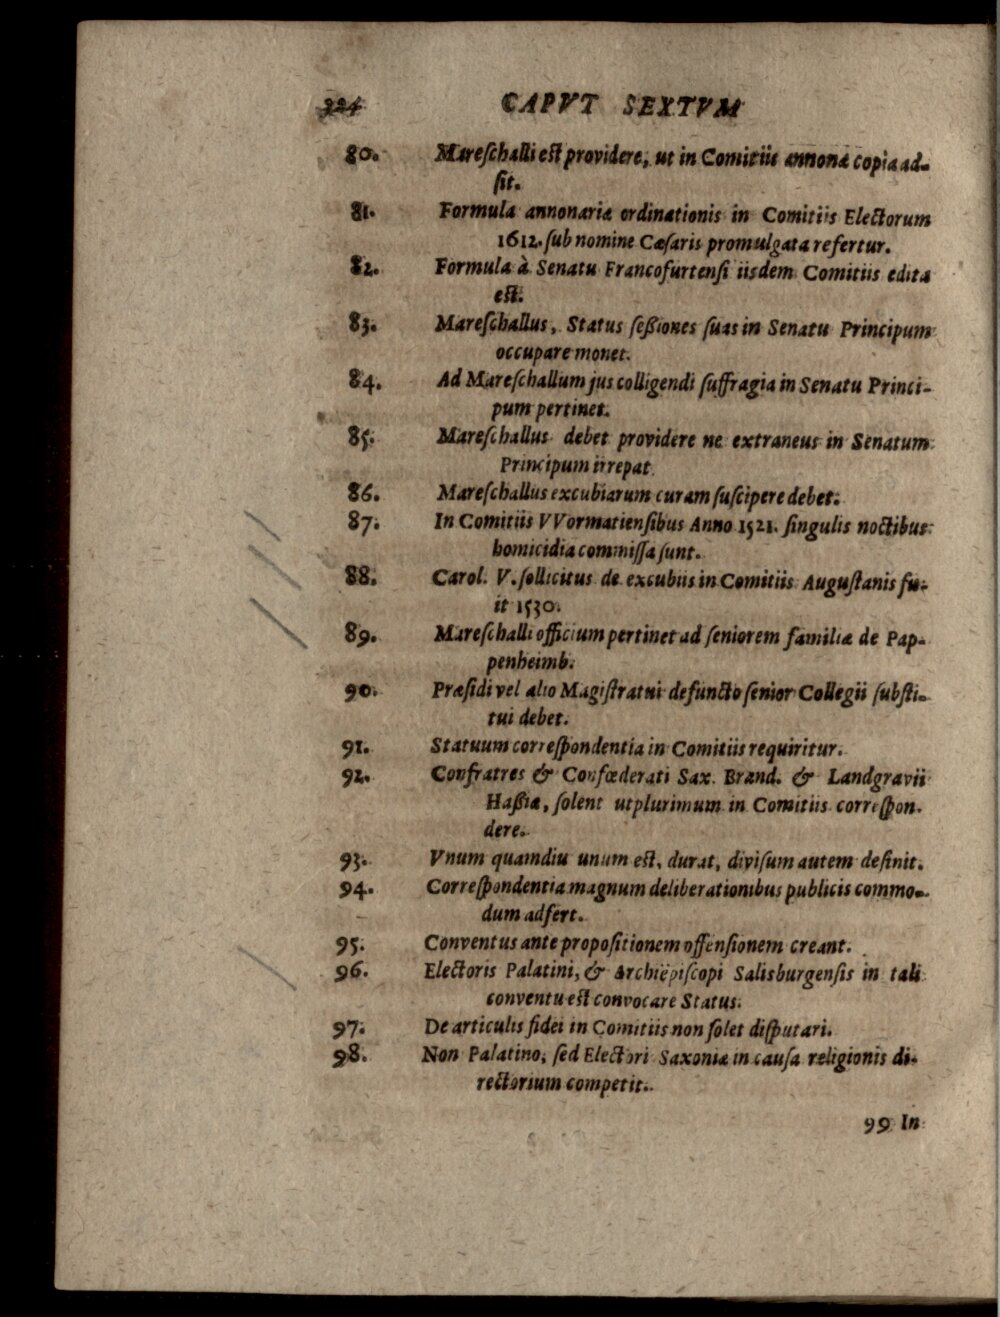 324 CAPVT SEXTVM
80. Mareſchalli eſt providere, ut in Comitiis annonæ copia ad-
ſit.
81. Formula annonariæ ordinationis in Comitiis Electorum
1612. ſub nomine Cæſaris promulgata refertur.
82. Formula à Senatu Francofurtenſi iisdem Comitiis edita
eſt.
83. Mareſchallus, Status ſeßiones ſuas in Senatu Principum
occupare monet.
84. Ad Mareſchallum jus colligendi ſuffragia in Senatu Princi-
pum pertinet.
85. Mareſchallus debet providere ne extraneus in Senatum
Principum irrepat.
86. Mareſchallus excubiarum curam ſuſcipere debet.
87. In Comitiis VVormatienſibus Anno 1521. ſingulis noctibus
homicidia commiſſa ſunt.
88. Carol. V. ſollicitus de excubiis in Comitiis Auguſtanis fu-
it 1530.
89. Mareſchalli officium pertinet ad ſeniorem familiæ de Pap-
penheimb.
90. Præſidi vel alio Magiſtratui defuncto ſenior Collegii ſubſti-
tui debet.
91. Statuum correſpondentia in Comitiis requiritur.
92. Confratres & Confœderati Sax. Brand. & Landgravii
Haßiæ, ſolent utplurimum in Comitiis correſpon-
dere.
93. Vnum quamdiu unum eſt, durat, diviſum autem deſinit.
94. Correſpondentia magnum deliberationibus publicis commo-
dum adfert.
95. Conventus ante propoſitionem offenſionem creant.
96. Electoris Palatini, & Archiëpiſcopi Salisburgenſis in tali
conventu eſt convocare Status.
97. De articulis fidei in Comitiis non ſolet diſputari.
98. Non Palatino, ſed Electori Saxoniæ in cauſa religionis di-
rectorium competit.
99 In